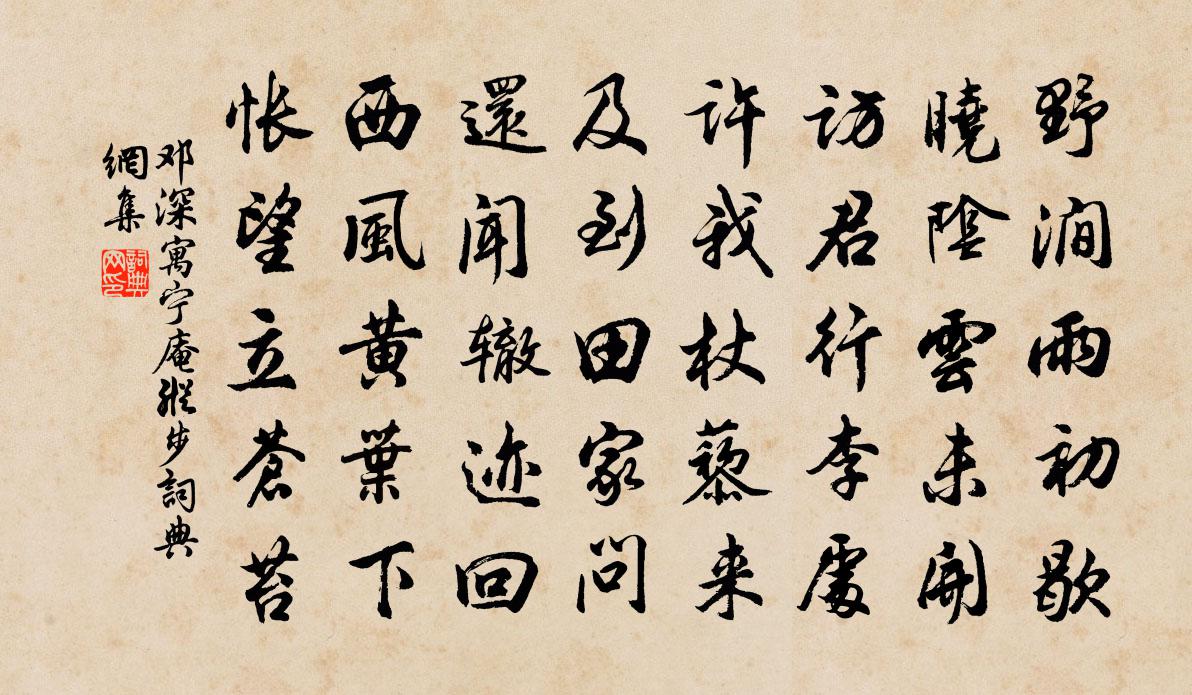 野澗雨初歇
曉陰雲未開
訪君行李處
許我杖藜来
及到田家問
還聞辙迹回
西風黄葉下
悵望立蒼苔
邓深寓宁庵縱步詞典
網集
詞典
网印